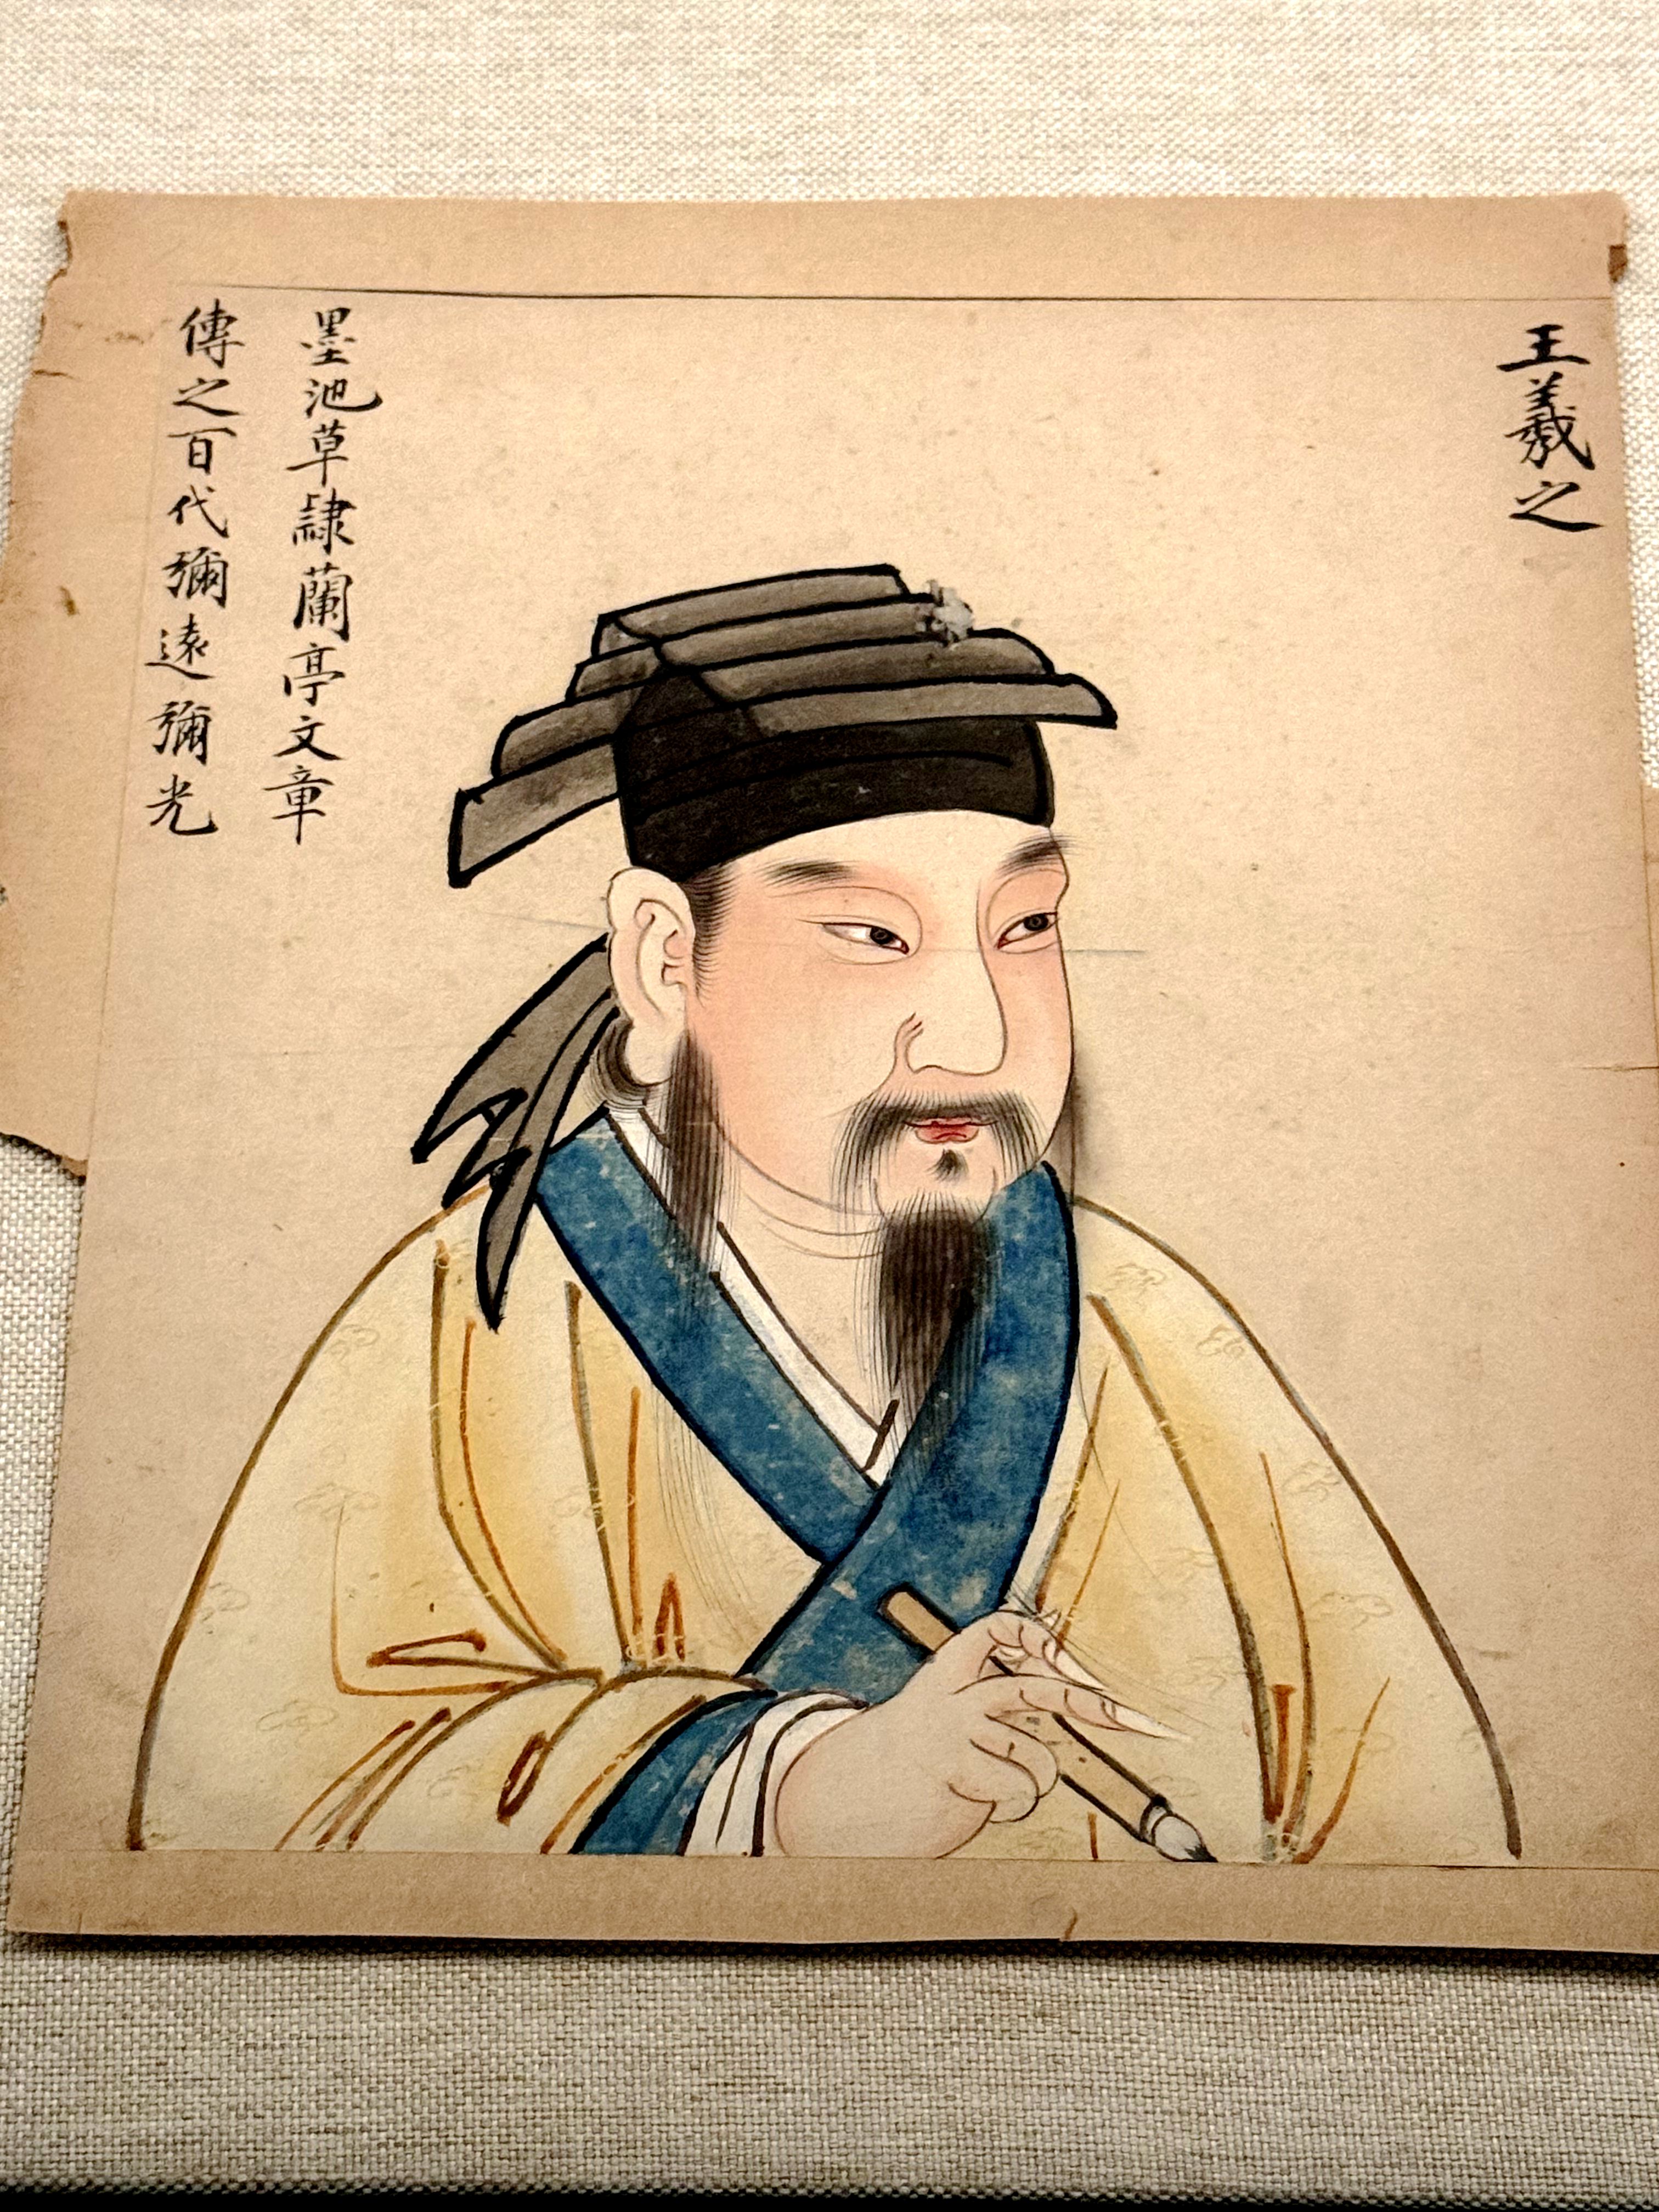 王羲之
墨池草隸蘭亭文章
傳之百代彌遠彌光